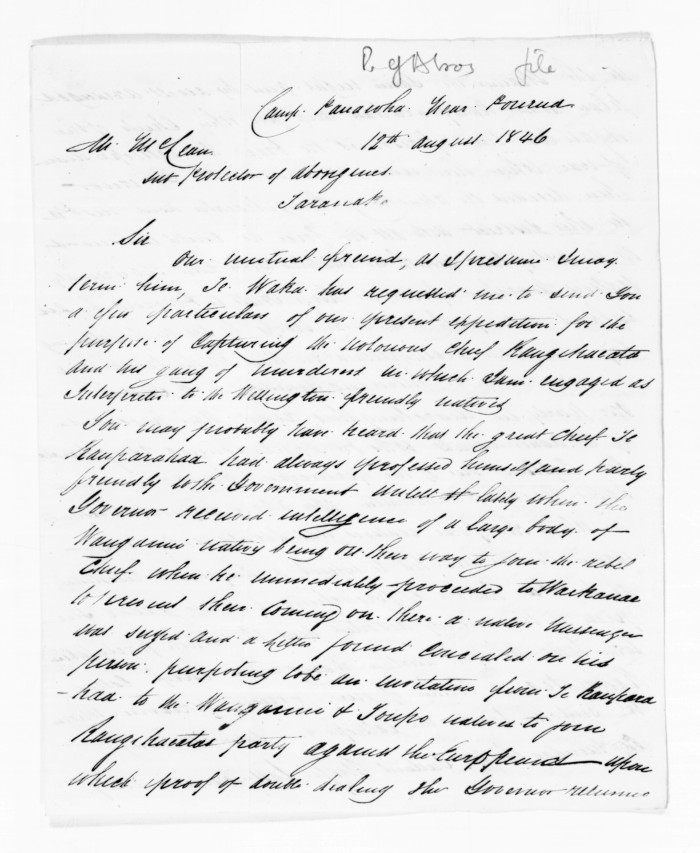 file
Camp Near
12th August 1846
Mr McLean
Sub Protector of Aborigines
Taranaki
Sir
Our mutual freind, as I presume I may
term him, Te Waka has requested me to send you
a few particulars of our present expedition for the
purpose of Capturing the notorious Chief Rangihaeata
and his gang of murderers in which I am engaged as
Interpreter to the Wellington friendly natives
You may probably have heard that the great Chief Te
Rauparahaa had always professed himself and party
friendly to the Government untill lately when the
Governor received intelligence of a large body of
Wanganui natives being on their way to join the rebel
Chief when he immediately proceeded to Waikanae
to prevent their Coming on there a native Messenger
was seized and a letter found Concealed on his
person purpoting to be an invitation from Te Raupara
-haa to the Wanganui & Toupo natives to join
Rangihaeatas party against the upon
which proof of double dealing the Governor returned